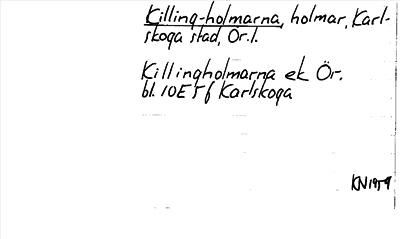 Killing-holmarna, holmar, Karl-
skoga stad, Ör.l.
Killingholmarna ek Ör.
bl. 10E 5 f Karlskoga
KN 1959